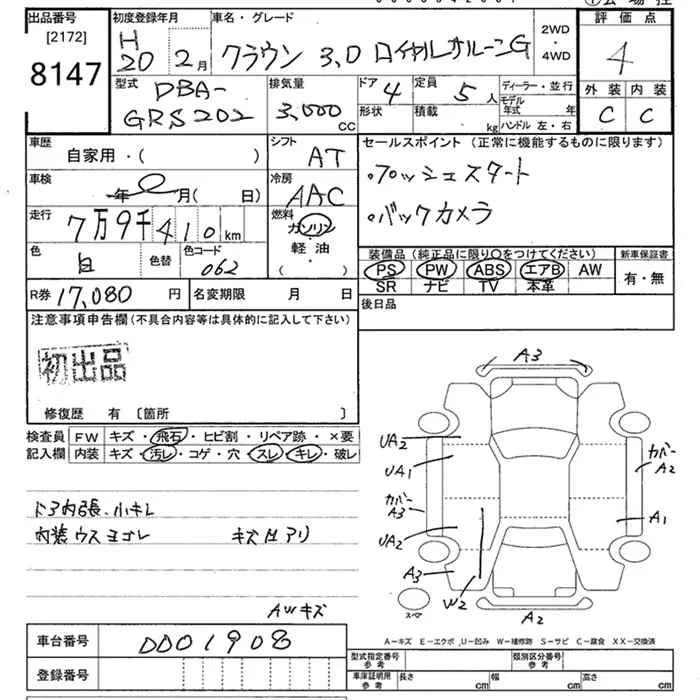 出品番号
[2172]
8147
初度登録年月
H
20 2月
車名・グレード
クラウン 3.0 ロイヤルサルーンG
2WD
・
4WD
評価点
4
外装 内装
C C
型式
DBA-
GRS202
排気量
3,000
CC
ドア 4
形状
定員 5 人
積載 kg
ディーラー・並行
モデル
年式 年
ハンドル 左・右
車歴
自家用・( )
シフト
AT
セールスポイント (正常に機能するものに限ります)
・プッシュスタート
・バックカメラ
車検
年 月( 日)
冷房
AAC
走行
7万9千410km
燃料
ガソリン
軽油
(・)
色
白
色替
色コード
062
装備品 (純正品に限り○をつけてください)
PS PW ABS エアB AW
SR ナビ TV 本革
新車保証書
有・無
R券 17,080 円
名変期限 月 日
後日品
注意事項申告欄(不具合内容等は具体的に記入して下さい)
初出品
修復歴 有 〔箇所 〕
検査員
記入欄
FW キズ・飛石・ヒビ割・リペア跡・×要
内装 キズ・汚レ・コゲ・穴・スレ・キレ・破レ
ドア内張、小キレ
内装ウスヨゴレ
AWキズ
A3
UA2
UA1
カバー
A3
UA2
A3
W2
A2
カバー
A2
A1
スペア
A-キズ E-エクボ U-凹み W-補修跡 S-サビ C-腐食 XX-交換済
車台番号
DD01908
登録番号
型式指定番号
参考
類別区分番号
参考
車庫証明用
参考
長さ cm
幅 cm
高さ cm